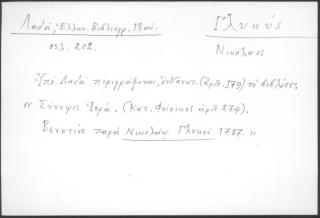 Λαδά, Ἑλλην. Βιβλιογρ. 18 αἰ.
σελ. 202.
Γλυκύς
Νικόλαος
Ὑπὸ Λαδᾶ περιγράφεται, (ἀριθ. 179) τὸ βιβλίον:
"Σύνοψις Ἱερά. (Κατ. Φοίνικος ἀριθ. 274).
Βενετία παρὰ Νικολάῳ Γλυκεῖ 1787."